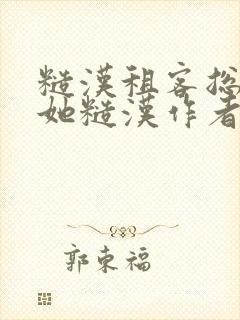 糙漢租客捻
她糙漢作者
郭東福